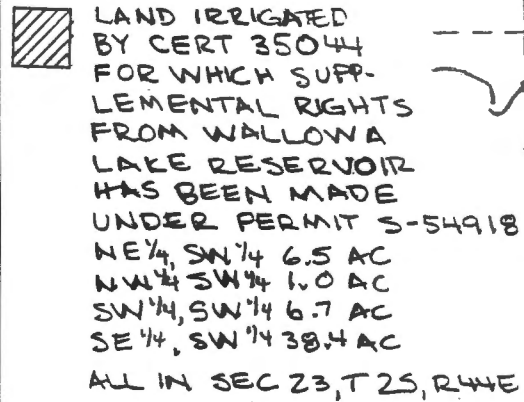 LAND IRRIGATED
BY CERT 35044
FOR WHICH SUPP-
LEMENTAL RIGHTS
FROM WALLOWA
LAKE RESERVOIR
HAS BEEN MADE
UNDER PERMIT S-54918
NE¼, SW¼ 6.5 AC
NW¼ SW¼ 1.0 AC
SW¼, SW¼ 6.7 AC
SE¼, SW¼ 38.4 AC
ALL IN SEC 23, T 2S, R44E